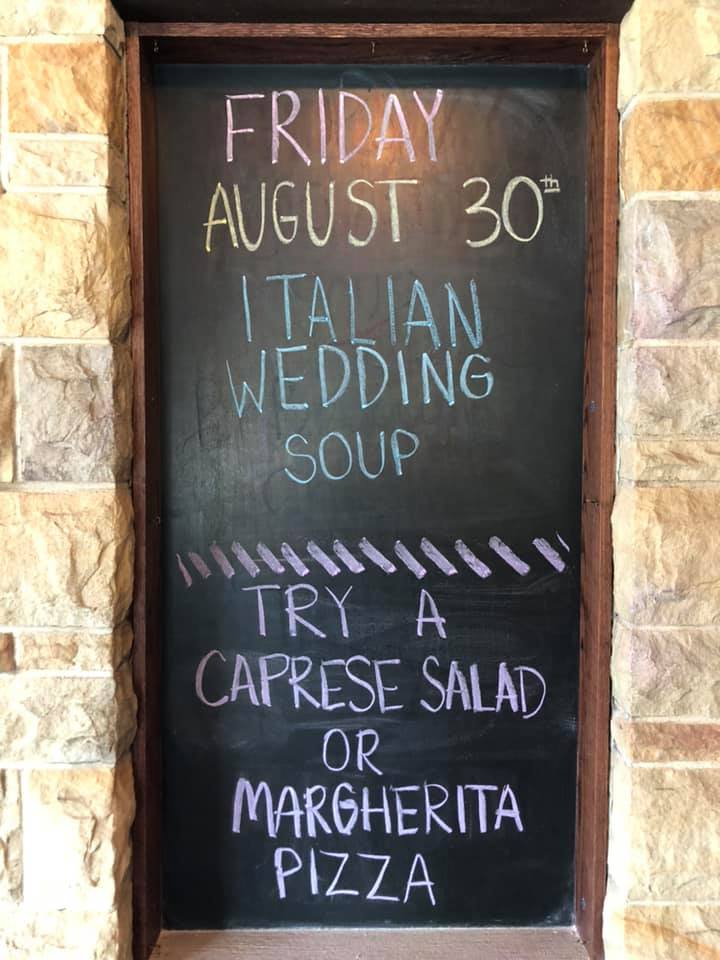 FRIDAY
AUGUST 30th
ITALIAN
WEDDING
SOUP
TRY A
CAPRESE SALAD
OR
MARGHERITA
PIZZA